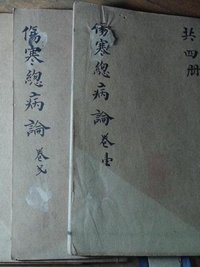 共四册
傷寒總病論 卷壹
傷寒總病論 卷弍